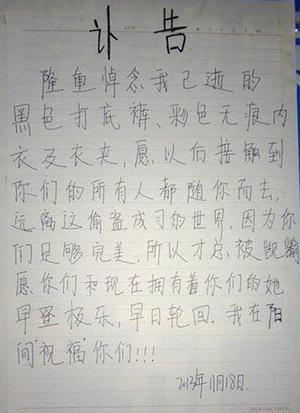 讣告
隆鱼悼念我已逝的
黑色打底裤、彩色无痕内
衣及衣夹,愿以后接触到
你们的所有人都随你而去,
远离这偷盗成习的世界,因为你
们足够完美,所以才总被觊觎
愿你们和现在拥有着你们的她
早登极乐,早日轮回.我在阳
间"祝福"你们!!!
2013年11月18日.